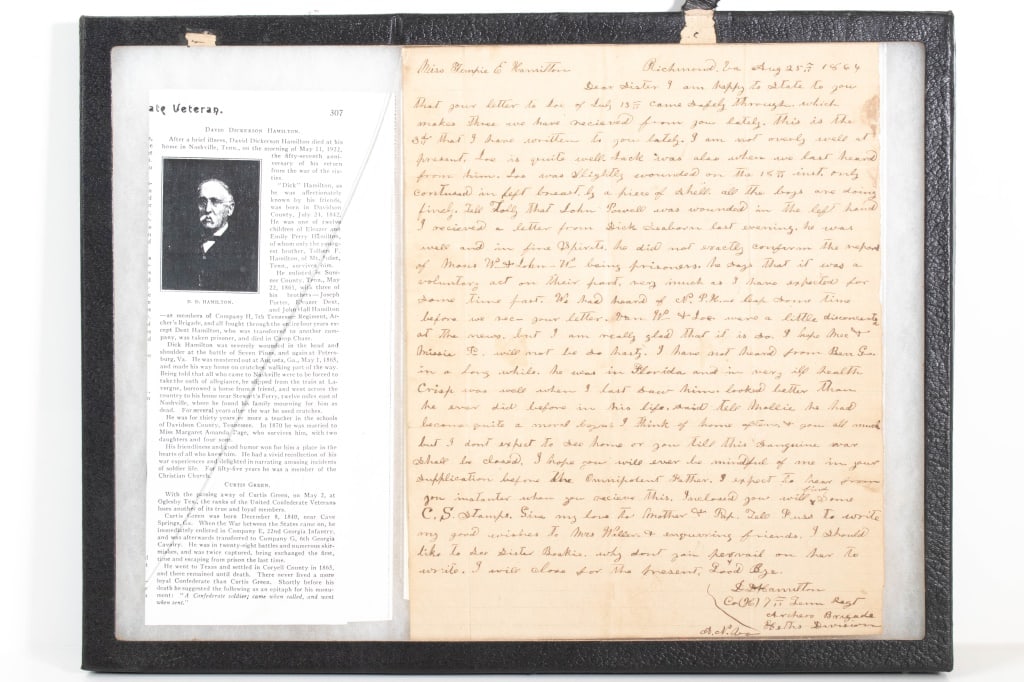 ate Veteran.
307
DAVID DICKERSON HAMILTON.
After a brief illness, David Dickerson Hamilton died at his
home in Nashville, Tenn., on the morning of May 31, 1922,
the fifty-seventh anni-
versary of his return
from the war of the six-
ties.
"Dick" Hamilton, as
he was affectionately
known by his friends,
was born in Davidson
County, July 31, 1842.
He was one of twelve
children of Eleazer and
Emilie Perry Hamilton,
of whom only the young-
est brother, F.
Hamilton, of Mt. Juliet,
Tenn., survives him.
He enlisted in Sum-
ner County, Tenn., May
22, 1861, with three of
his brothers—Joseph
Porter, Eleazer Dent,
and John Hall Hamilton
D. D. HAMILTON.
—as members of Company H, 7th Tennessee Regiment, Ar-
cher's Brigade, and all fought through the entire four years ex-
cept Dent Hamilton, who was transferred to another com-
pany, was taken prisoner, and died in Camp Chase.
Dick Hamilton was severely wounded in the head and
shoulder at the battle of Seven Pines, and again at Peters-
burg, Va. He was mustered out at Augusta, Ga., May 1, 1865,
and made his way home on crutches, walking part of the way.
Being told that all who came to Nashville were to be forced to
take the oath of allegiance, he slipped from the train at La-
vergne, borrowed a horse from a friend, and went across the
country to his home near Stewart's Ferry, twelve miles east of
Nashville, where he found his family mourning for him as
dead. For several years after she was he used crutches.
He was for thirty years or more a teacher in the schools
of Davidson County, Tennessee. In 1870 he was married to
Miss Margaret Amanda Page, who survives him, with two
daughters and four sons.
His friendliness and good humor won for him a place in the
hearts of all who knew him. He had a vivid recollection of his
war experiences and delighted in narrating amusing incidents
of soldier life. For fifty-five years he was a member of the
Christian Church.
CURTIS GREEN.
With the passing away of Curtis Green, on May 2, at
Oglesby Tex., the ranks of the United Confederate Veterans
lose another of its true and loyal members.
Curtis Green was born December 8, 1840, near Cave
Springs, Ga. When the War between the States came on, he
immediately enlisted in Company E, 22nd Georgia Infantry,
and was afterwards transferred to Company G, 6th Georgia
Cavalry. He was in twenty-eight battles and numerous skir-
mishes, and was twice captured, being exchanged the first
time and escaping from prison the last time.
He went to Texas and settled in Coryell County in 1865,
and there remained until death. There never lived a more
loyal Confederate than Curtis Green. Shortly before his
death he suggested the following as an epitaph for his monu-
ment: "A Confederate soldier; came when called, and went
when sent."
Miss Tempie E Hamilton Richmond, Va Aug 25th 1864
Dear Sister I am happy to State to you
that your letter to Joe of July 13th came safely through. which
makes three we have recieved from you lately. this is the
3d that I have written to you lately. I am not overly well at
present. Joe is quite well. Hack was also when we last heard
from him. Joe was slightly wounded on the 18th inst. only
contused in left breast by a piece of Shell. all the boys are doing
finely. Tell that John Powell was wounded in the left hand
I recieved a letter from Dick Seaborn last evening. he was
well and in fine Spirits. he did not exactly confirm the report
of W. & John W. being prisoners. he says that it was a
voluntary act on their part. very much as I have expected for
Some time past. We had heard of N. P. leap Some time
before we rec— your letter. & Joe were a little disconcerted
at the news. but I am really glad that it is so. I hope &
Missie will not be so hasty. I have not heard from Ben
in a long while. he was in Florida and in very ill health
Crisp was well when I last saw him. looked better than
he ever did before in his life. said tell Mollie he had
became quite a moral boy. I think of home often & you all much
but I dont expect to See home or you till this Sanguine war
Shall be closed. I hope you will ever be mindful of me in your
supplication before the Omnipotent Father. I expect to hear from
you instanter when you recieve this. Inclosed you will find Some
C. S. Stamps. Give my love to Mother & Pap. Tell to write
my good wishes to Mrs & enquiring friends. I Should
like to See Sister Beckie. why dont you pervail on her to
write. I will close for the present, Good Bye.
D D Hamilton
Co (H) 7th Tenn Regt
Archers Brigade
Heths Division
A. N. Va